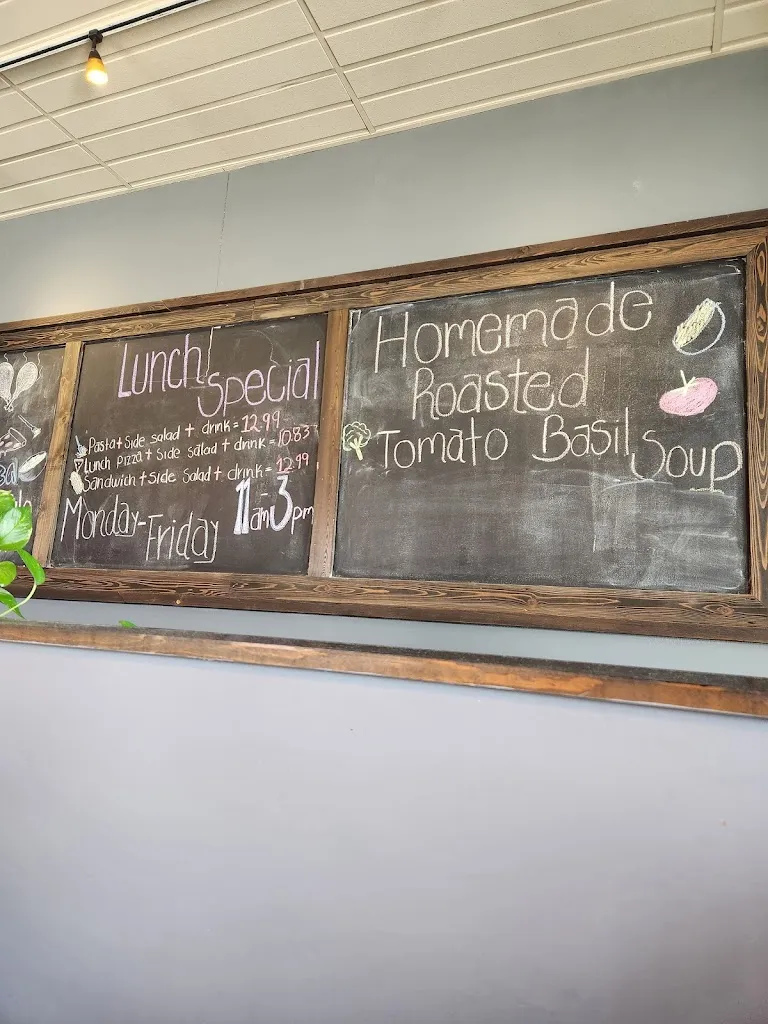 Lunch!
Special
Pasta + Side salad + drink = 12.99
Lunch pizza + Side salad + drink = 10.83
Sandwich + Side Salad + drink = 12.99
Monday-Friday 11am-3pm
Homemade
Roasted
Tomato Basil Soup